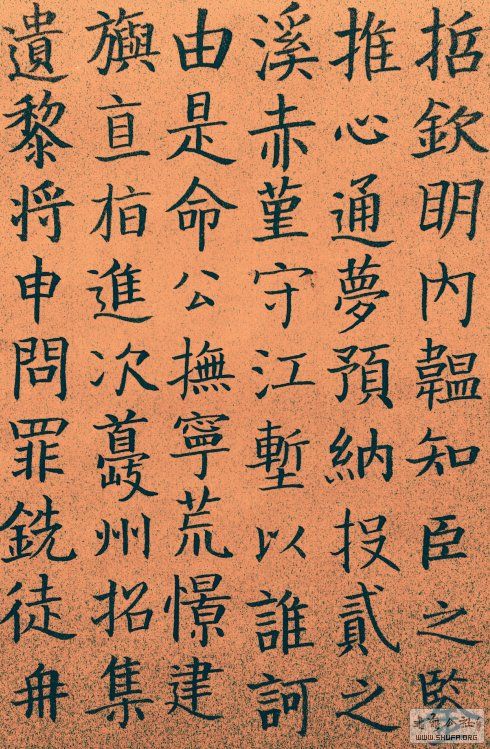 哲欽明內韞知臣之監
推心通夢預納投貳之
溪赤堇守江塹以誰訶
由是命公撫寧荒憬建
旟直指進次夔州招集
遺黎將申問罪銑徒冉
WWW.SHUFA.ORG